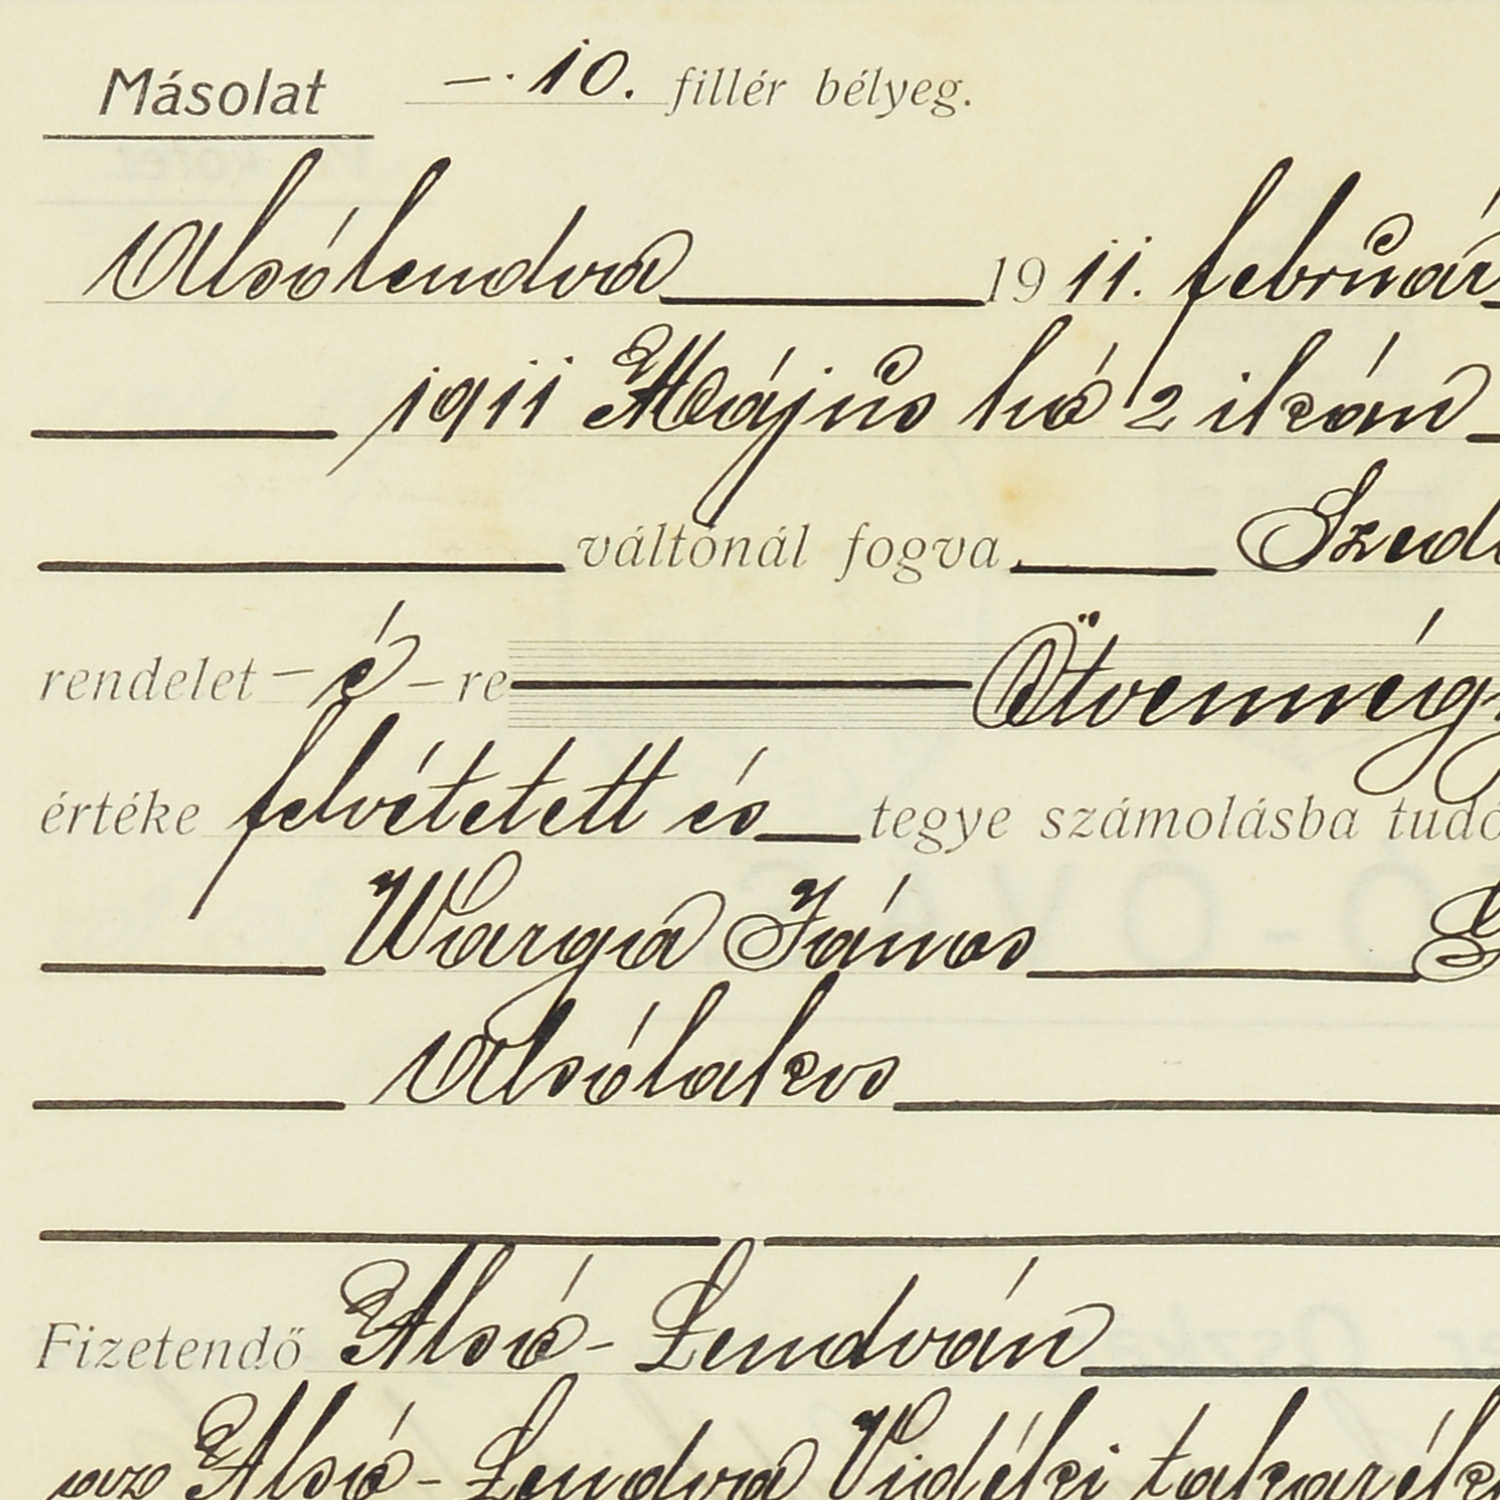 Másolat —. 10. fillér bélyeg.
Alsólendva 1911. február
1911 Május hó 2 ikán
váltónál fogva Szed
rendelet – é – re Ötvennégy
értéke felvétetett és tegye számolásba tudó
Warga János
Alsólakos
Fizetendő Alsó-Lendván
az Alsó-Lendva Vidéki takarék